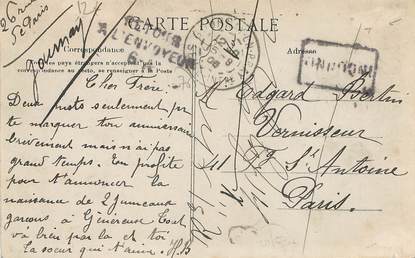 CARTE POSTALE
RETOUR
A L'ENVOYEUR
INCONNU
Correspondance
Adresse
Tous les pays étrangers n'acceptent pas la
correspondance au recto, se renseigner à la Poste
Cher Frère.
Deux mots seulement pr te
marquer ton anniversaire
brèvement mais n'ai pas
grand temps. En profite
pour t'annoncer la
naissance de 2 jumeaux
garçons à Généreuse Tout
va bien par là et toi
Ta sœur qui t'aime. H.B
M Edgard Bertin
Vernisseur
41 Fg St Antoine
Paris.